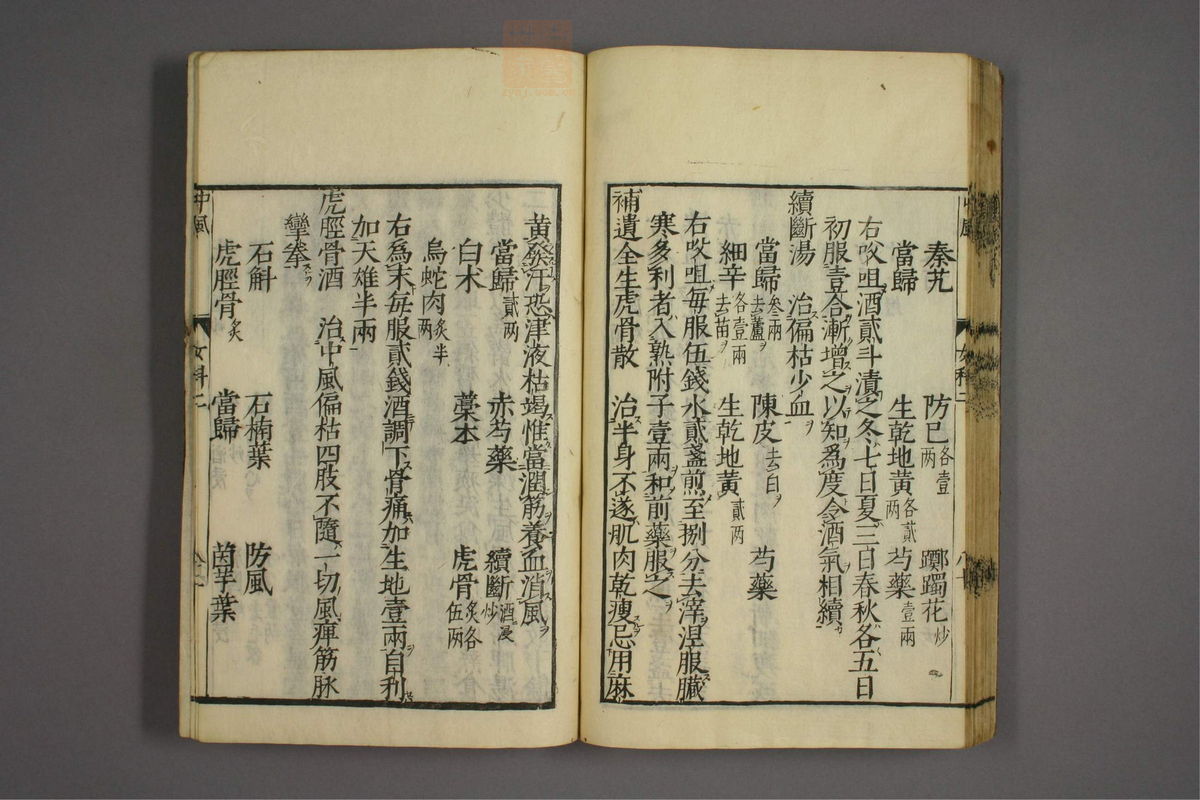 秦艽 防己各壹兩 躑躅花炒
當歸 生乾地黃各貳兩 芍藥壹兩
右㕮咀酒貳斗漬之冬七日夏三日春秋各五日
初服壹合漸增之以知爲度令酒氣相續
續斷湯 治偏枯少血
當歸叁兩去蘆 陳皮去白 芍藥
細辛各壹兩去苗 生乾地黃貳兩
右㕮咀每服伍錢水貳盞煎至捌分去滓溫服臟
寒多利者入熟附子壹兩和前藥服之
補遺全生虎骨散 治半身不遂肌肉乾瘦忌用麻
中風 女科二
黃發汗恐津液枯竭惟當潤筋養血消風
當歸貳兩 赤芍藥 續斷酒浸炒
白朮 藁本 虎骨炙各伍兩
烏蛇肉炙半兩
右爲末每服貳錢酒調下骨痛加生地壹兩自利
加天雄半兩
虎脛骨酒 治中風偏枯四肢不隨一切風痺筋脉
攣拳
石斛 石楠葉 防風
虎脛骨炙 當歸 茵芋葉
中風 女科二